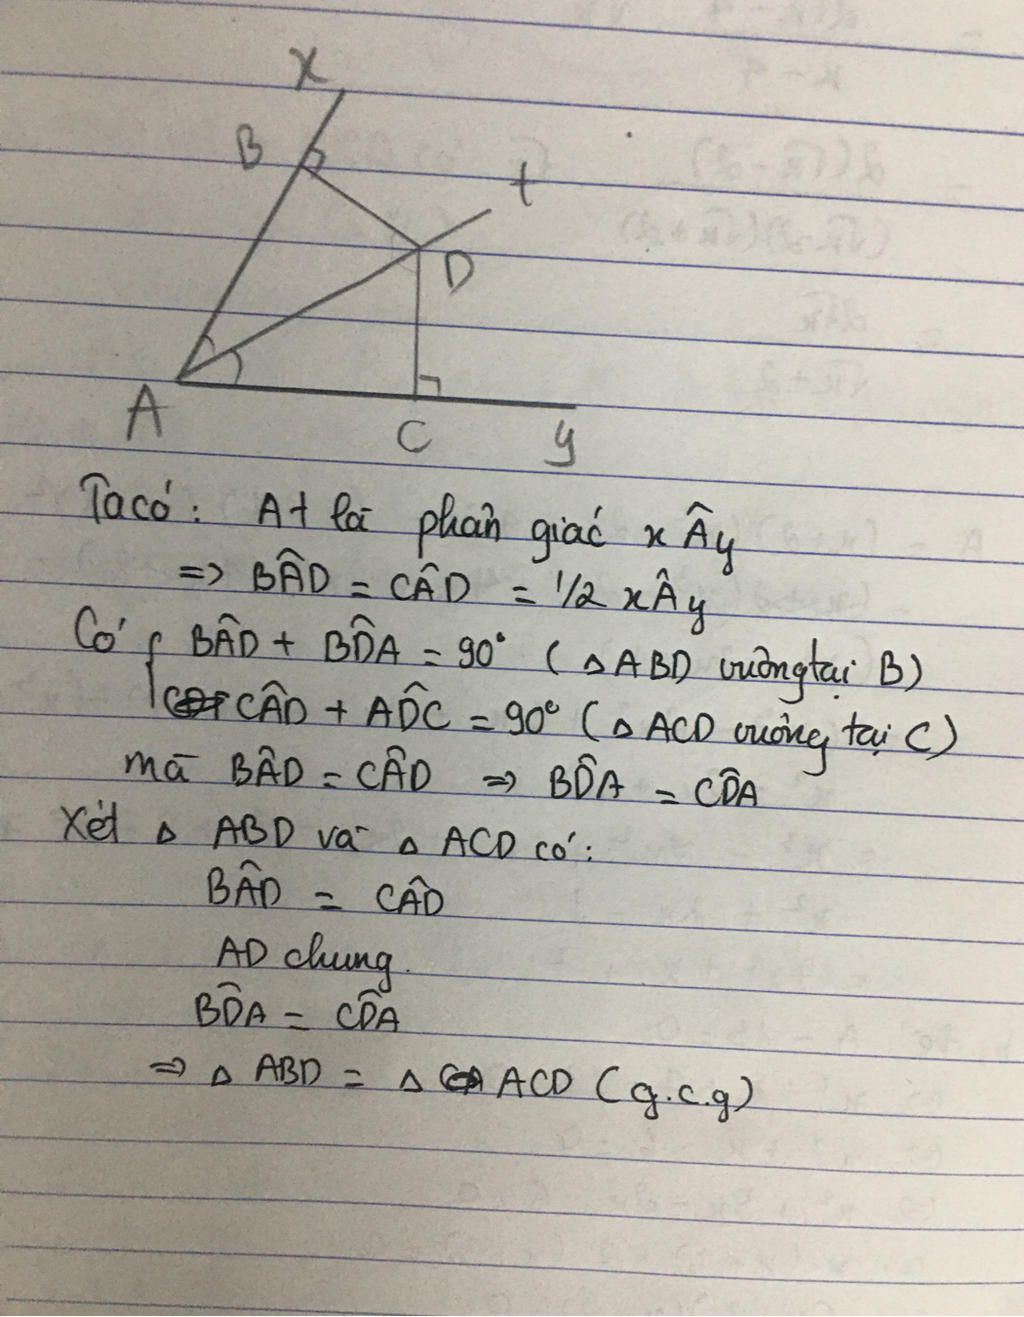 x
B
t
D
A
C
y
Ta có: At là phân giác xÂy
=> BÂD = CÂD = 1/2 xÂy
Có { BÂD + BD̂A = 90° (△ABD vuông tại B)
CÂD + AD̂C = 90° (△ACD vuông tại C)
mà BÂD = CÂD => BD̂A = CD̂A
Xét △ ABD và △ ACD có:
BÂD = CÂD
AD chung.
BD̂A = CD̂A
=> △ ABD = △ ACD (g.c.g)